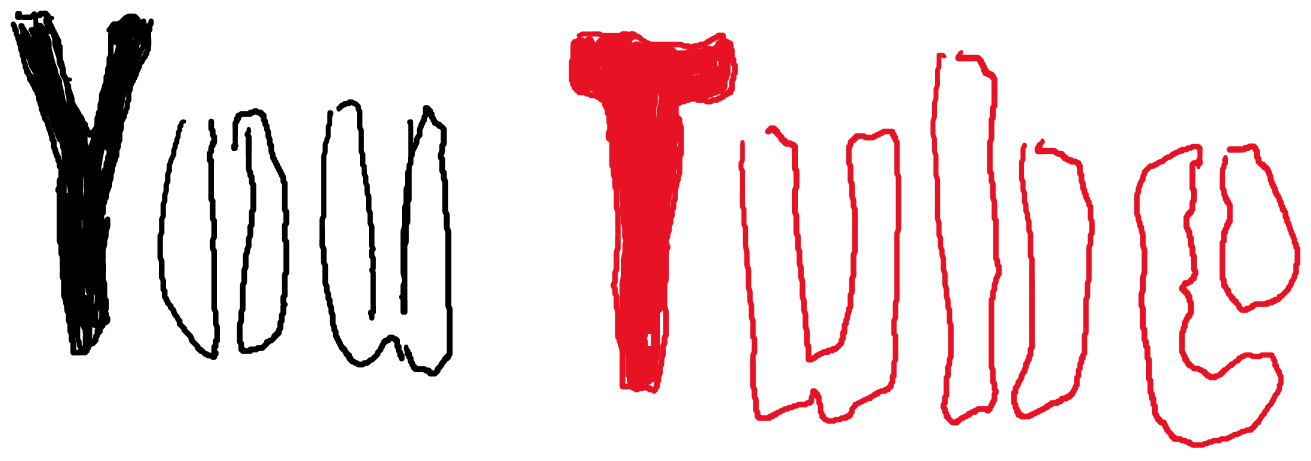 You Tube